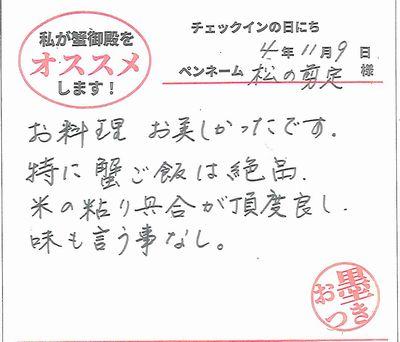 私が蟹御殿を
オススメ
します!
チェックインの日にち
4年11月9日
ペンネーム 松の剪定 様
お料理 お美しかったです.
特に蟹ご飯は絶品.
米の粘り具合が頂度良し.
味も言う事なし。
お墨つき